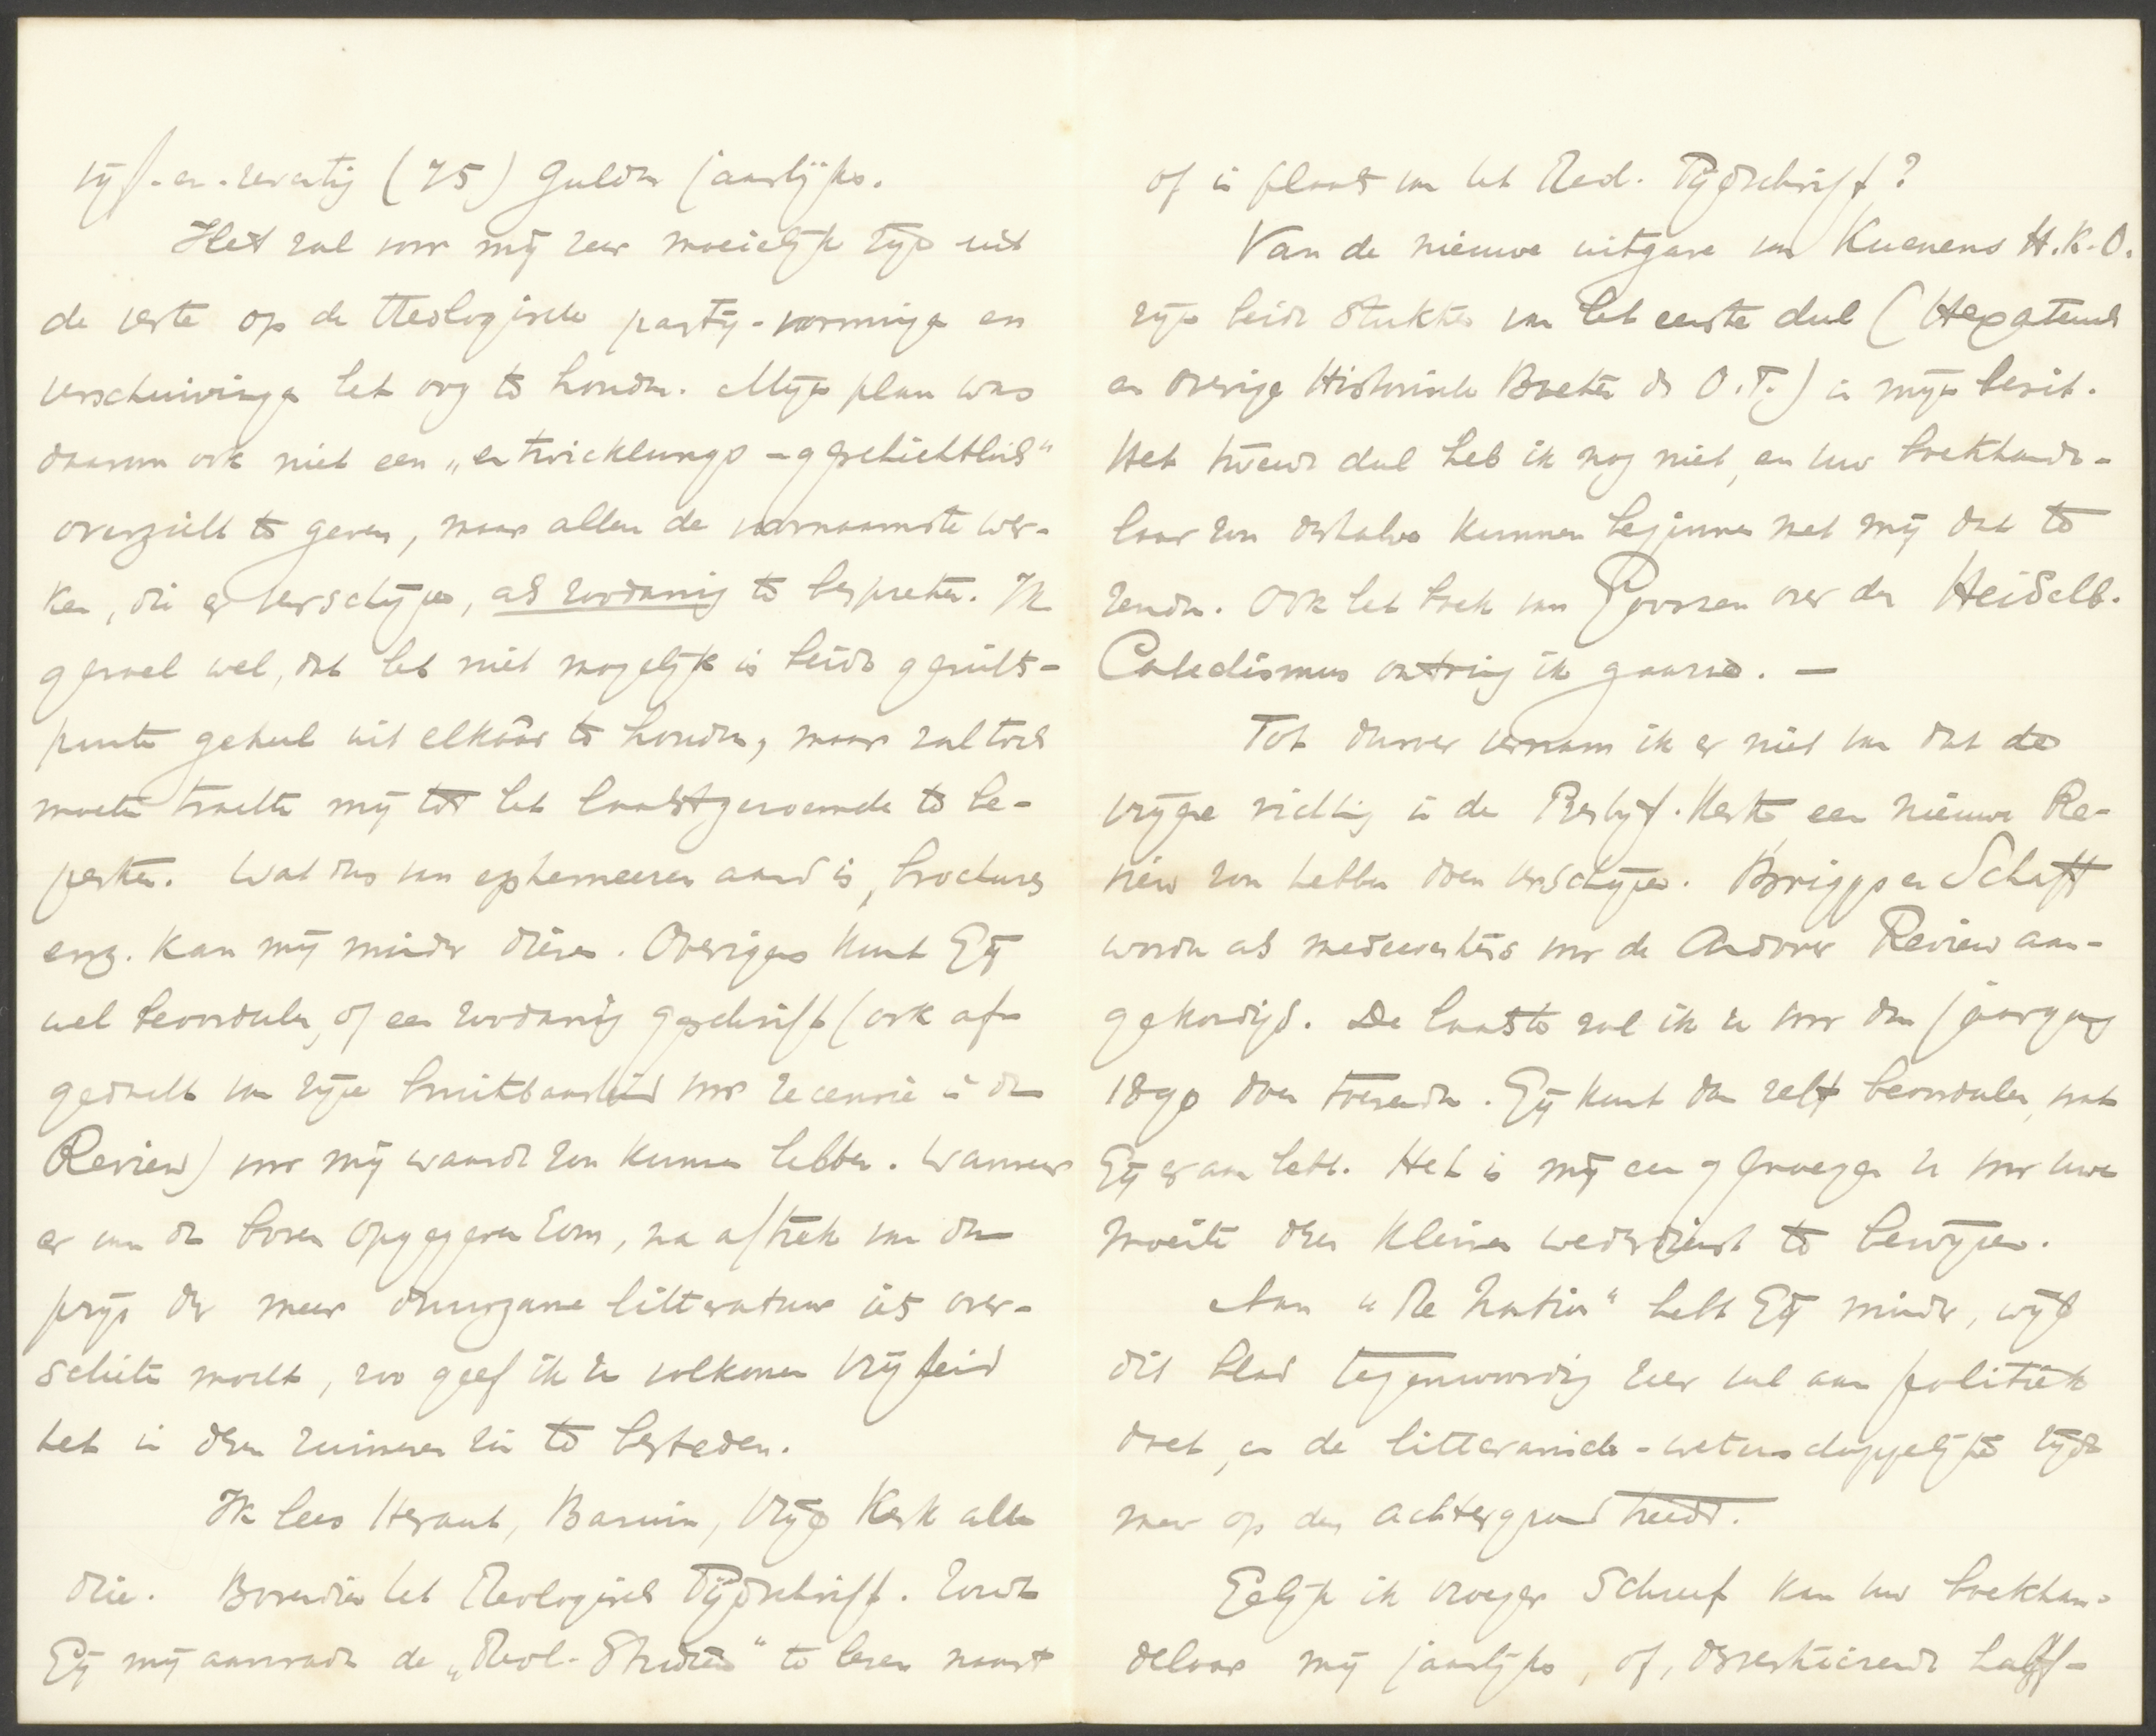 vijf-en-zeventig (75) Gulden jaarlijks.
Het zal voor mij zeer moeielijk zijn uit
de verte op de theologische partij-vorminge en
verschuivinge het oog te houden. Mijn plan was
daarom ook niet een „entwicklungs-geschichtlich"
overzicht te geven, maar alleen de voornaamste wer-
ken, die er verschijnen, als zoodanig te bespreken. Ik
gevoel wel, dat het niet mogelijk is beide gezichts-
punten geheel uit elkaâr te houden, maar zal toch
moeten trachten mij tot het laatstgenoemde te be-
perken. Wat dus van ephemeeren aard is, brochures
enz. kan mij minder dienen. Overigens kunt Gij
wel beoordeelen, of een zoodanig geschrift (ook af-
gedacht van zijne bruikbaarheid voor recensie in de
Review) voor mij waarde zou kunnen hebben. Wanneer
er van de boven opgegeven som, na aftrek van den
prijs der meer duurzame litteratuur iets over-
schieten mocht, zoo geef ik U volkomen vrijheid
het in dezen ruimeren zin te besteden.
Ik lees Heraut, Bazuin, Vrije Kerk alle
drie. Bovendien het Theologisch Tijdschrift. Zoudt
Gij mij aanraden de „Theol. Studiën" te lezen naast
of in plaats van het Theol. Tijdschrift?
Van de nieuwe uitgave van Kuenens H.K.O.
zijn beide stukken van het eerste deel (Hexateuch
en overige Historische Boeken des O.T.) in mijn bezit.
Het tweede deel heb ik nog niet, en uw boekhande-
laar zou derhalve kunnen beginnen met mij dat te
zenden. Ook het boek van Gooszen over den Heidelb.
Catechismus ontving ik gaarne. —
Tot dusver vernam ik er niet van dat de
vrijere richting in de Presbyt. Kerk een nieuwe Re-
view zou hebben doen verschijnen. Briggs en Schaff
worden als medewerkers voor de Andover Review aan-
gekondigd. De laatste zal ik U voor den jaargang
1890 doen toezenden. Gij kunt dan zelf beoordeelen, wat
Gij er aan hebt. Het is mij een genoegen U voor uwe
moeite dezen kleinen wederdienst te bewijzen.
Aan "The Nation" hebt Gij minder, wijl
dit blad tegenwoordig zeer veel aan politiek
doet, en de litterarisch-wetenschappelijke zijde
meer op den achtergrond treedt.
Gelijk ik vroeger schreef kan uw boekhan-
delaar mij jaarlijks, of, desverkiezende half-